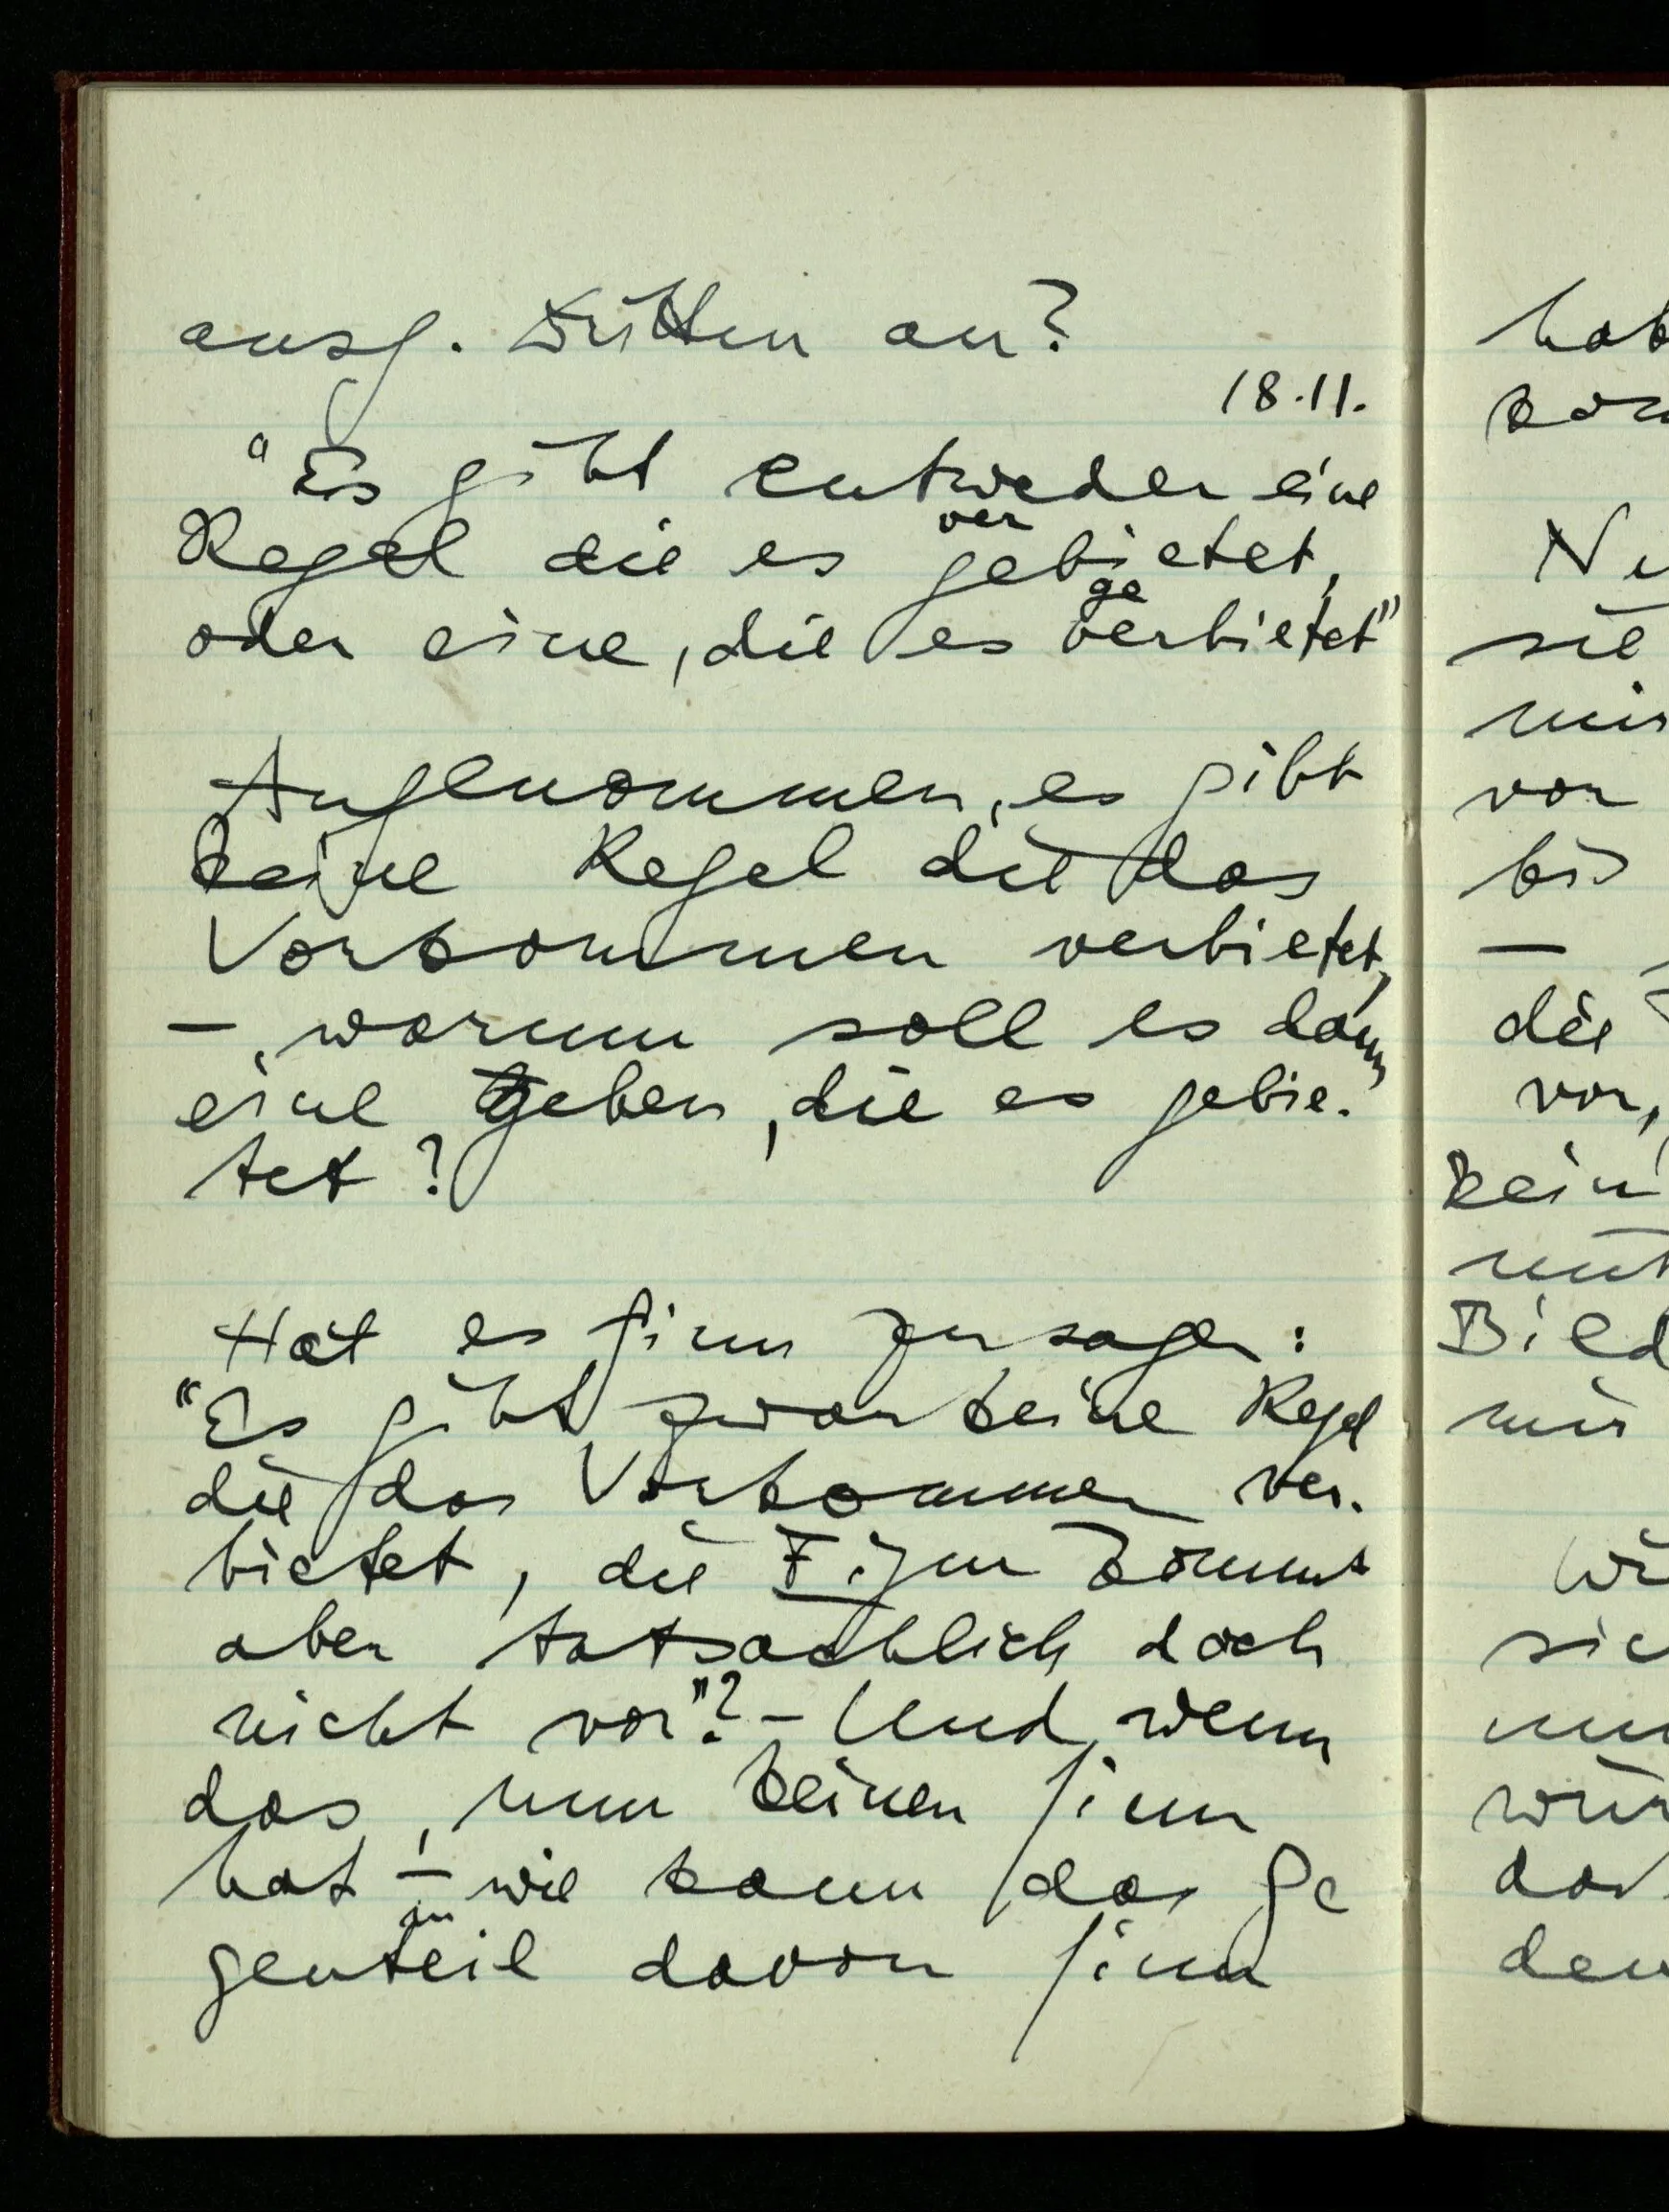 ausg. Dritten an?
18.11.
"Es gibt entweder eine
ver
Regel die es gebietet,
ge
oder eine, die es verbietet"
Angenommen, es gibt
keine Regel die das
Vorkommen verbietet,
– warum soll es dann
eine geben, die es gebie-
tet?
Hat es Sinn zu sagen:
"Es gibt zwar keine Regel
die das Vorkommen ver-
bietet, die Figur kommt
aber tatsachlich doch
nicht vor"? – Und wenn
das nun keinen Sinn
hat – wie kann das Ge
genteil davon Sinn
hab
kom
sie
mir
von
bis
–
die
vor,
kein
mut
Bild
mir